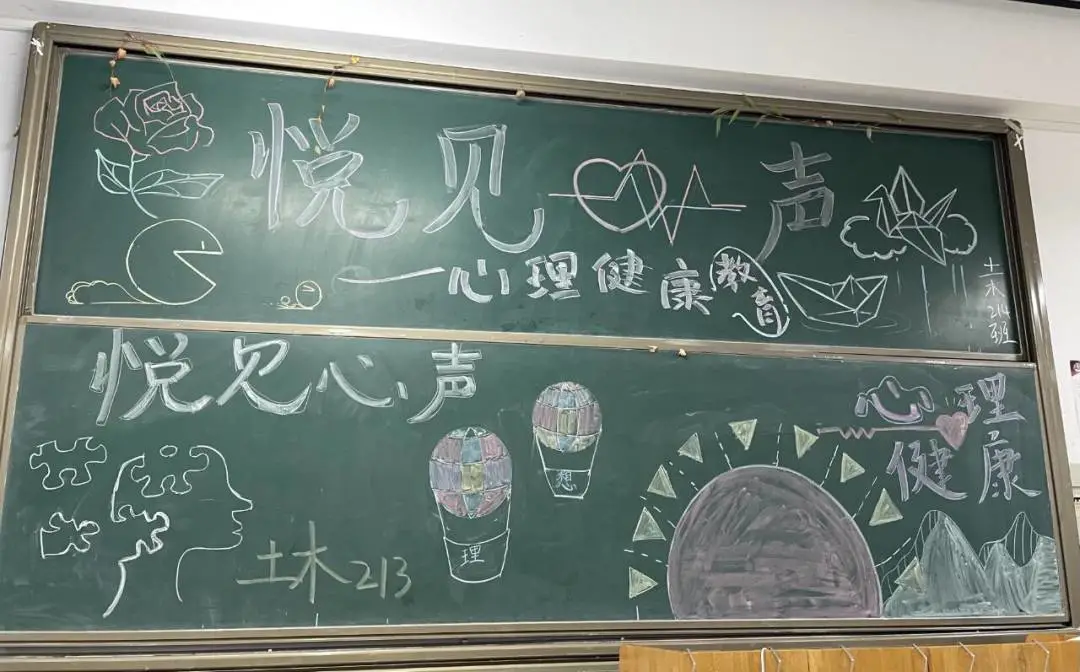 悦见声
—心理健康教育
土木214班
悦见心声
心理
健康
想
理
土木213